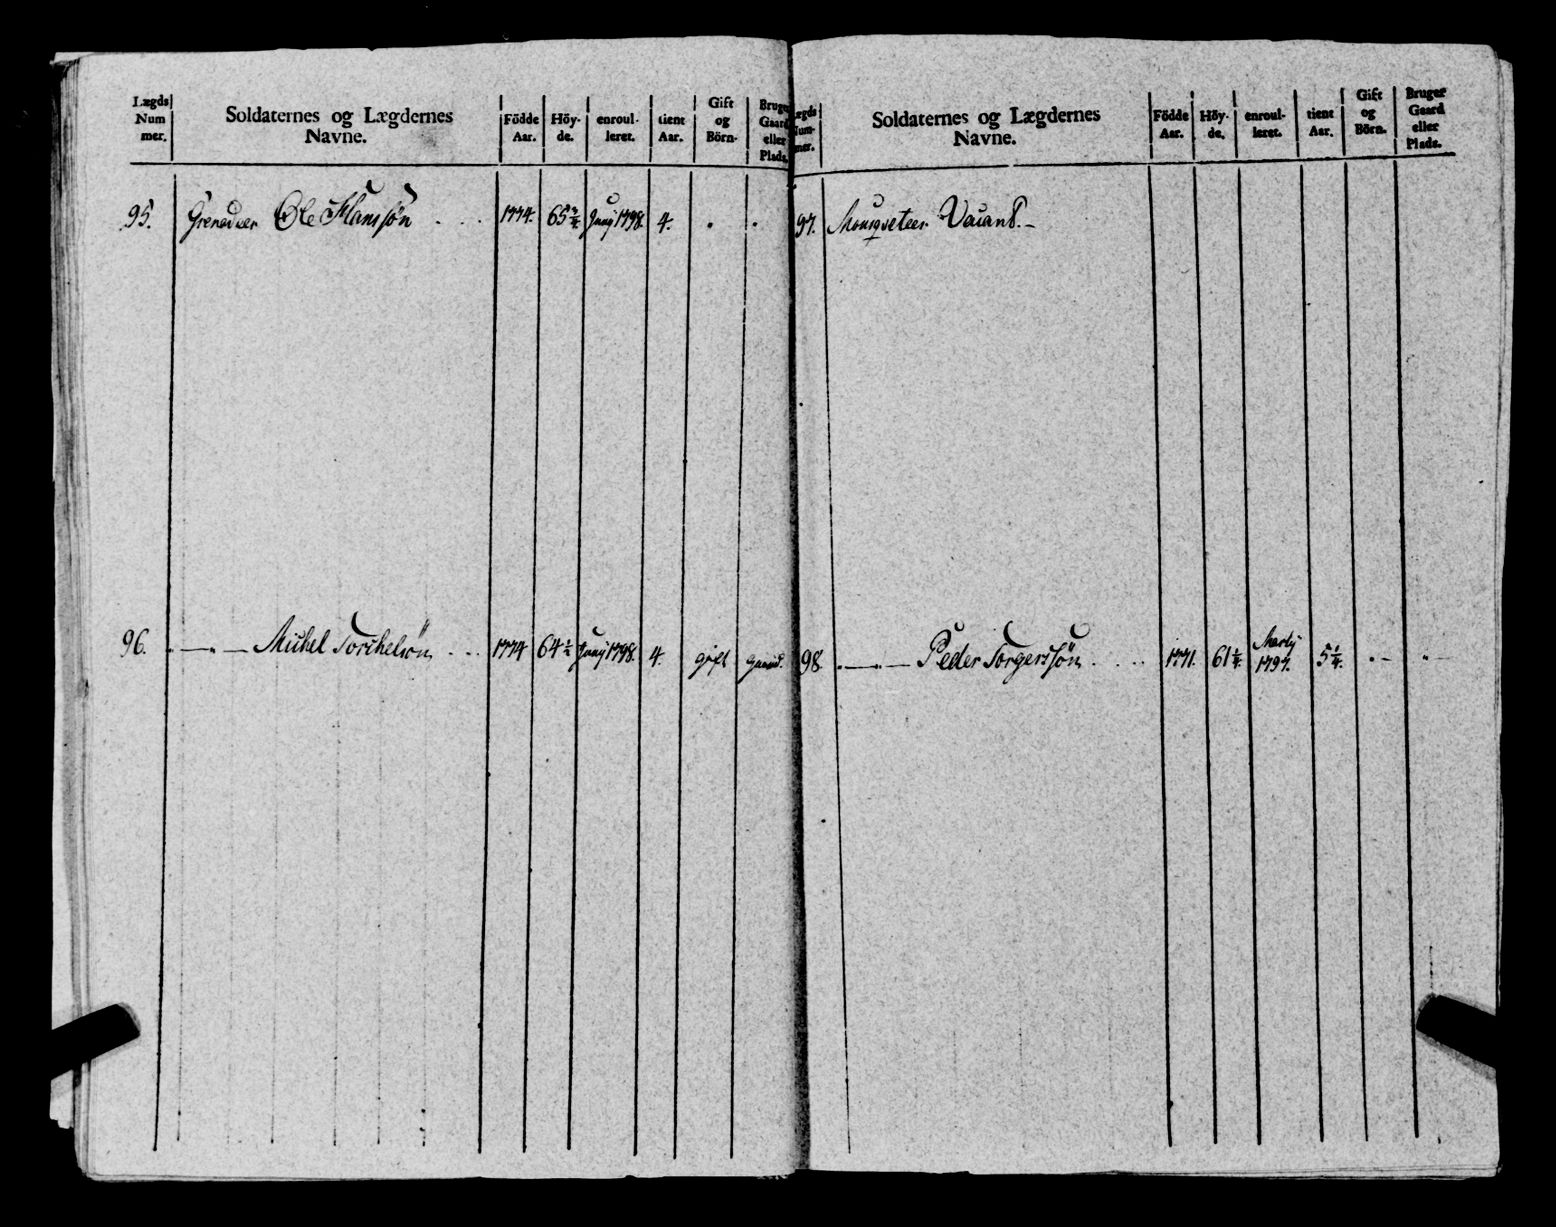 Lægds Num mer.
Soldaternes og Lægdernes Navne.
Födde Aar.
Höy- de.
enroul- leret.
tient Aar.
Gift og Börn.
Bruger Gaard eller Plads.
95. Grenadeer Ole Hansøn . . . 1774. 65 3/4. Junij 1798. 4. . .
96. — — Michel Torchelsøn . . . 1774 64 1/4 Junij 1798. 4. gift Gaard.
Lægds Num- mer.
Soldaternes og Lægdernes Navne.
Födde Aar.
Höy- de.
enroul- leret.
tient Aar.
Gift og Börn.
Bruger Gaard eller Plads.
97. Mousqveteer Vacant. —
98 — — Peder Torgerssøn . . . . 1771. 61 1/4. Martij 1797. 5 1/4. . – . –